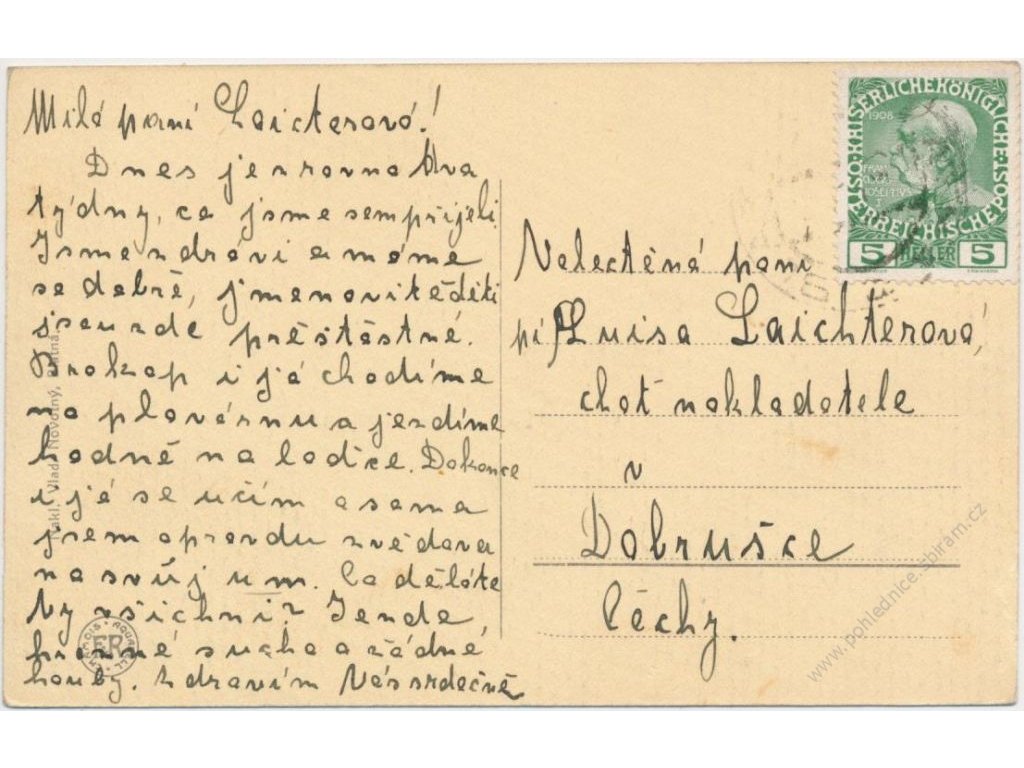 Milá paní Laichterová!
Dnes je rovno dva
týdny, co jsme sem přijeli.
Jsme zdrávi a máme
se dobře, jmenovitě děti
jsou zde přešťastné.
Prokop i já chodíme
na plovárnu a jezdíme
hodně na loďce. Dokonce
i já se učím a sama
jsem opravdu zvědava
na svůj um. Co děláte
Vy všichni? Jen de
hrozné sucho a žádné
houby. Zdravím Vás srdečně
Nakl. Vlad. Novotný,
KAISERLICHE KÖNIGLICHE
ÖSTERREICHISCHE POST
1908
5 HELLER 5
Velectěná paní
pí Luisa Laichterová,
choť nakladatele
v
Dobrušce
Čechy.
www.pohlednice.sbiram.cz